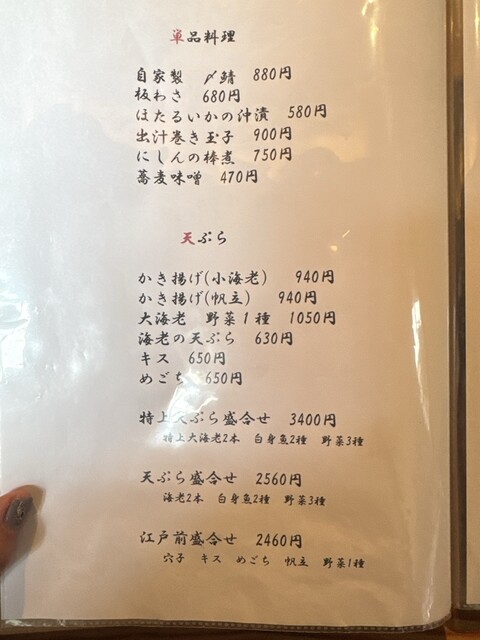 単品料理
自家製 〆鯖 880円
板わさ 680円
ほたるいかの沖漬 580円
出汁巻き玉子 900円
にしんの棒煮 750円
蕎麦味噌 470円
天ぷら
かき揚げ(小海老) 940円
かき揚げ(帆立) 940円
大海老 野菜1種 1050円
海老の天ぷら 630円
キス 650円
めごち 650円
特上天ぷら盛合せ 3400円
特上大海老2本 白身魚2種 野菜3種
天ぷら盛合せ 2560円
海老2本 白身魚2種 野菜3種
江戸前盛合せ 2460円
穴子 キス めごち 帆立 野菜1種